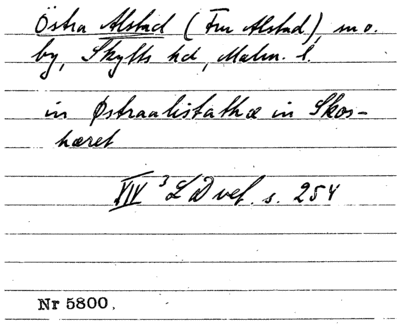 Östra Alstad (Fru Alstad), m o.
by, Skytts hd, Malm. l.
in Østraalistathæ in Skos-
hæret
XIV 3 L D vef. s. 254
Nr 5800.